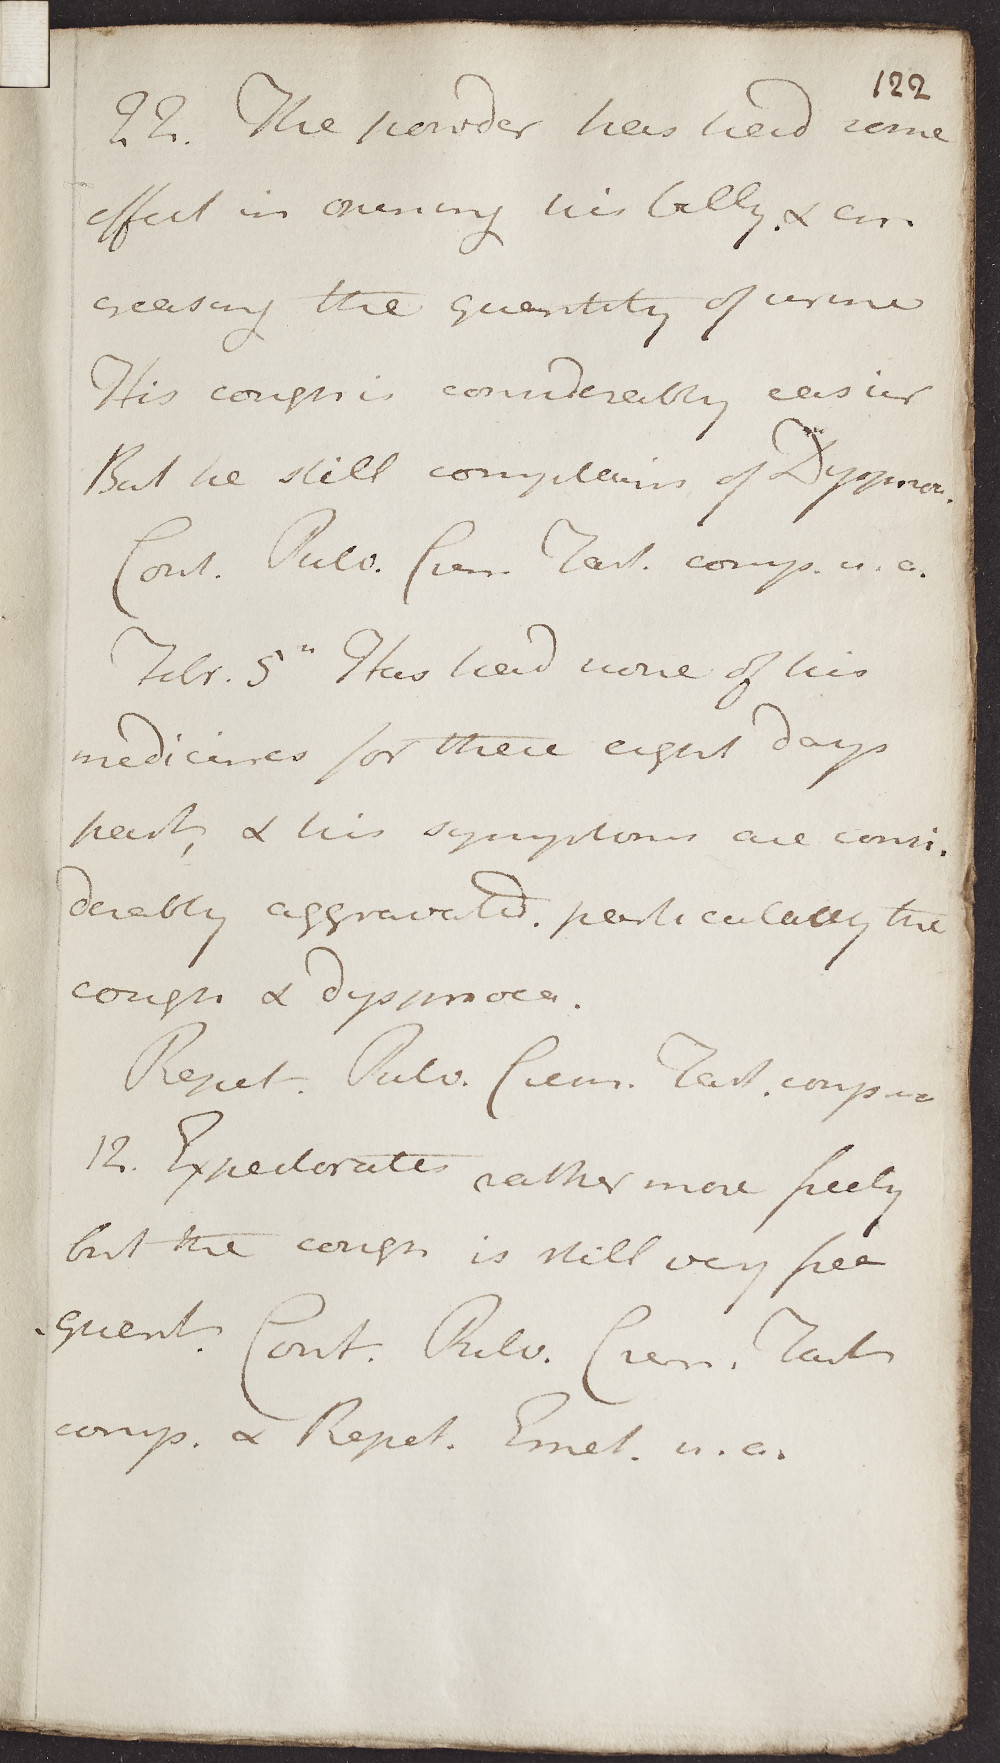 122
22. The powder has had some
effect in opening his belly. & en
creasing the quantity of urine
His cough is considerably easier
But he still complains of Dyspnoea.
Cont. Pulv. Crem. Tart. comp. u. a.
Febr. 5" Has had none of his
medicines for these eight days
past, & his symptoms are consi.
derably aggravated. particularly the
cough & dyspnoea.
Repet. Pulv. Crem. Tart. comp u a
12. Expectorates rather more freely
but the cough is still very fre
quent. Cont. Pulv. Crem. Tart
comp. & Repet. Emet. u. a.